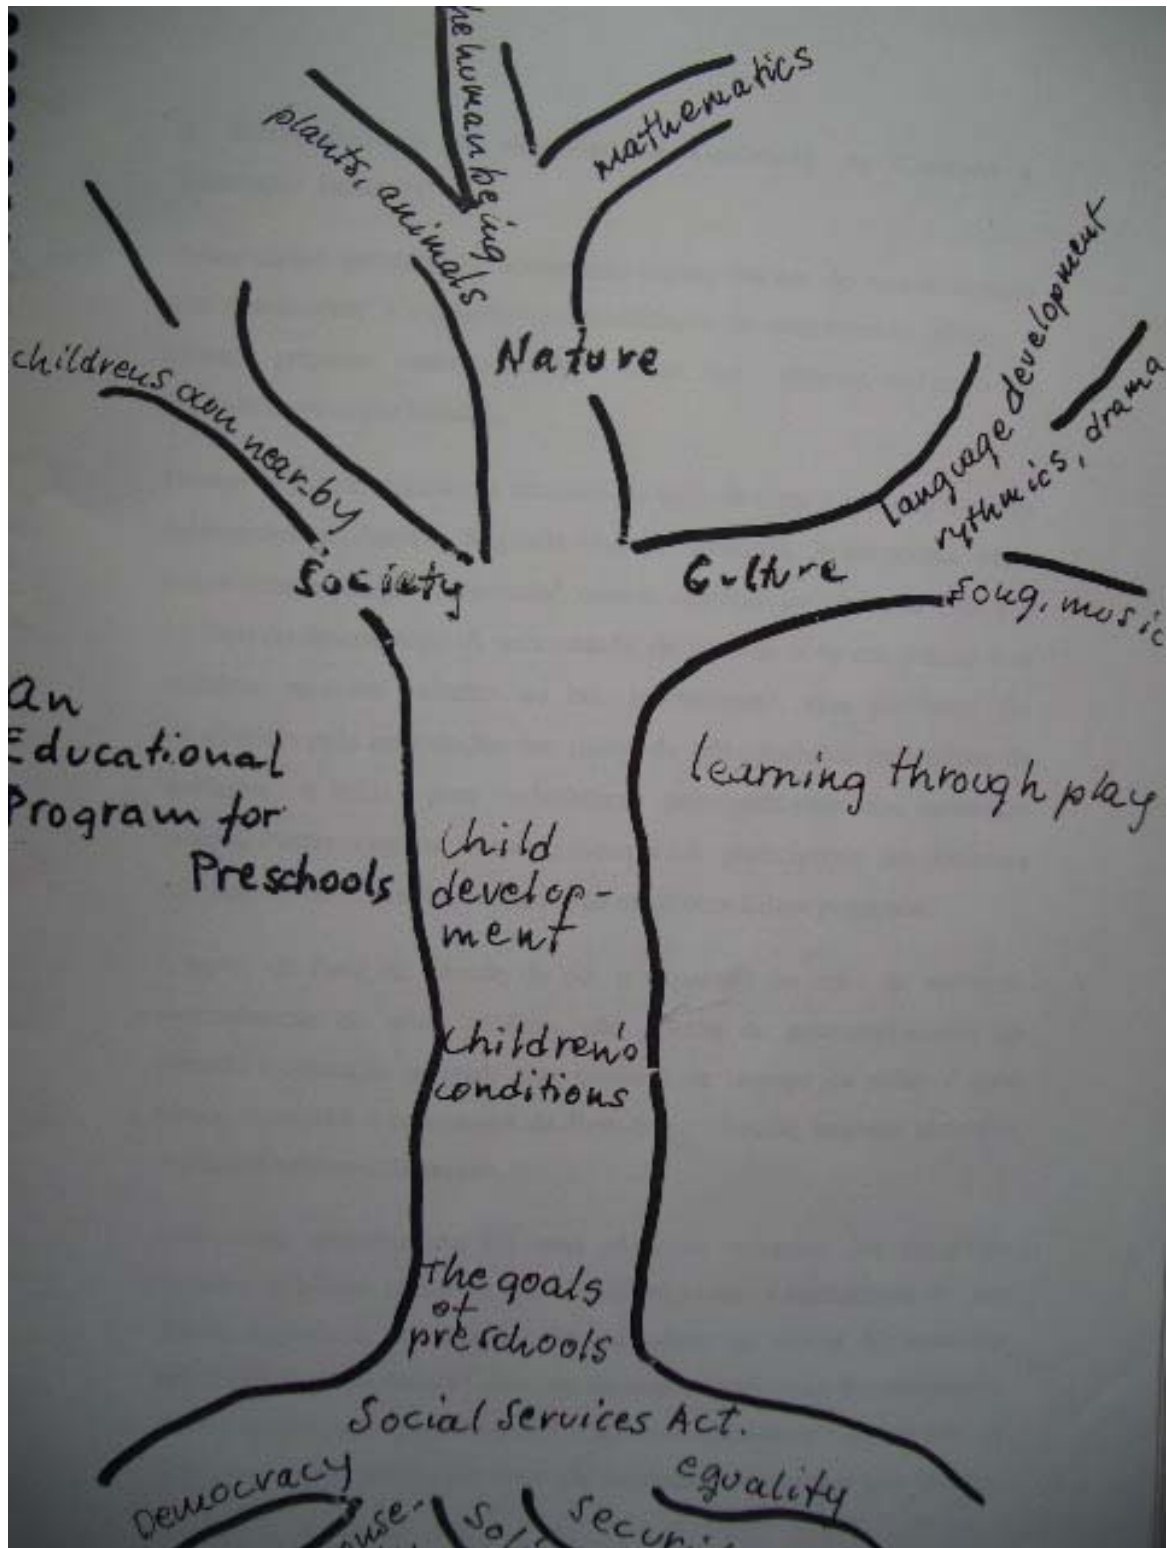 he human being
mathematics
plants, animals
Nature
childrens own near-by
language development
rythmics, drama
Society
Culture
song, music
an
Educational
Program for
Preschools
learning through play
Child
develop-
ment
Children's
conditions
The goals
of
preschools
Social Services Act.
Democracy
equality